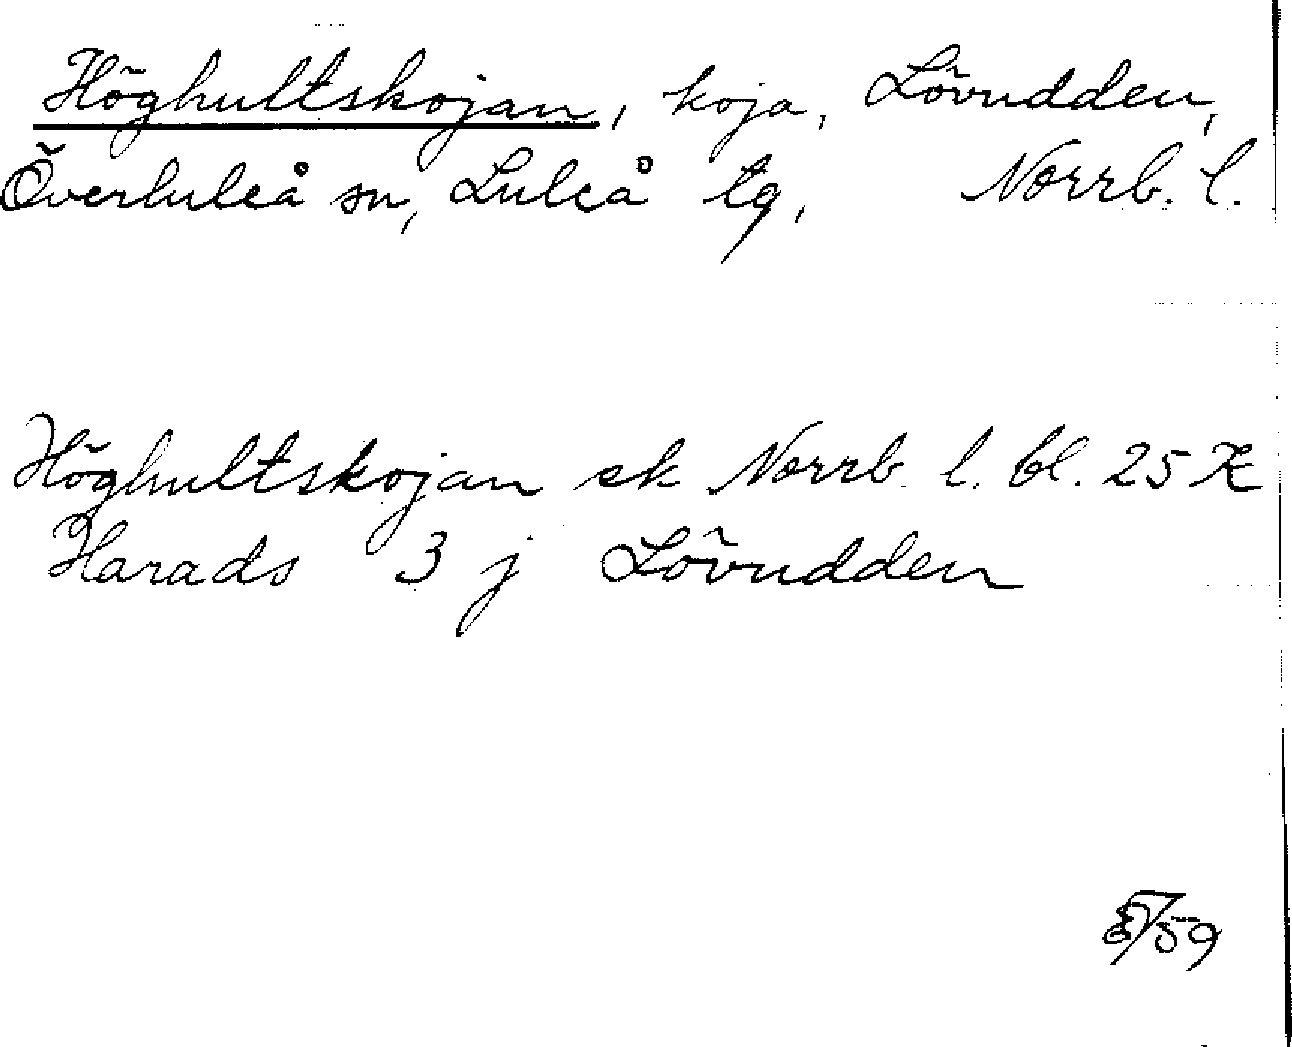 Höghultskojan, koja, Lövudden,
Överluleå sn, Luleå tg, Norrb. l.
Höghultskojan ek Norrb. l. bl. 25 K
Harads 3 j Lövudden